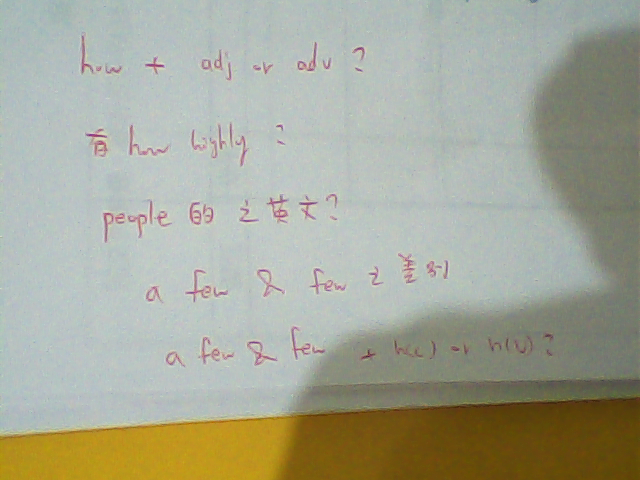 how + adj or adv ?
有 how highly ?
people 的 之 英文?
a few & few 之 差別
a few & few + n(c) or n(u) ?